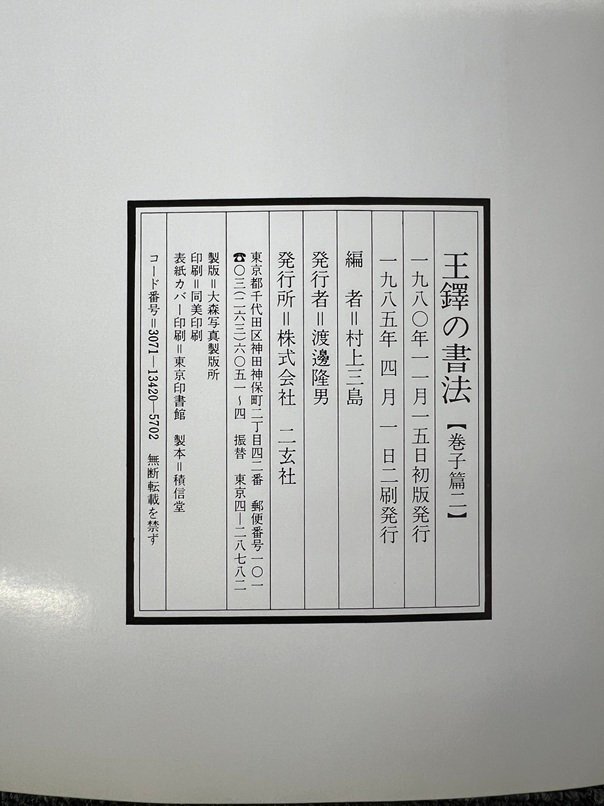 王鐸の書法【巻子篇二】
一九八〇年一一月一五日初版発行
一九八五年 四月 一日二刷発行
編　者＝村上三島
発行者＝渡邊隆男
発行所＝株式会社 二玄社
東京都千代田区神田神保町二丁目四二番 郵便番号一〇一
☎〇三(二六三)六〇五一〜四 振替 東京四—二八七八二
製版＝大森写真製版所
印刷＝同美印刷
表紙カバー印刷＝東京印書館 製本＝積信堂
コード番号＝3071—13420—5702 無断転載を禁ず